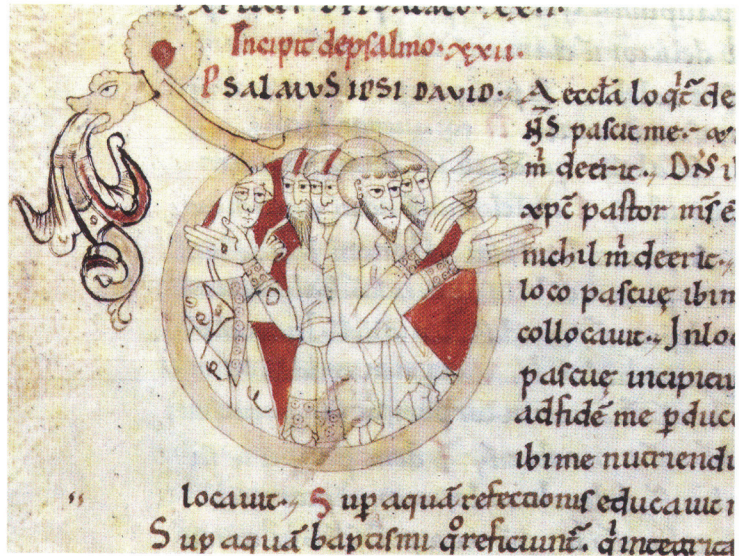 Incipit de psalmo · xxii ·
PSALMUS IPSI DAVID · A eccła loq̃t̃ de
D̃N̄S pascit me ·
m̃ deerit ., DN̄S
xp̃c pastor m̃s ẽ
nichil m̃ deerit .,
loco pascuę ibi
collocauit ., In lo
pascuę incipien
ad fidẽ me pduc
ibi me nutriendi
locauit ., Sup aquã refectionis educauit
Sup aquã baptismi q̃ reficiunt̃ . q̃ integrita